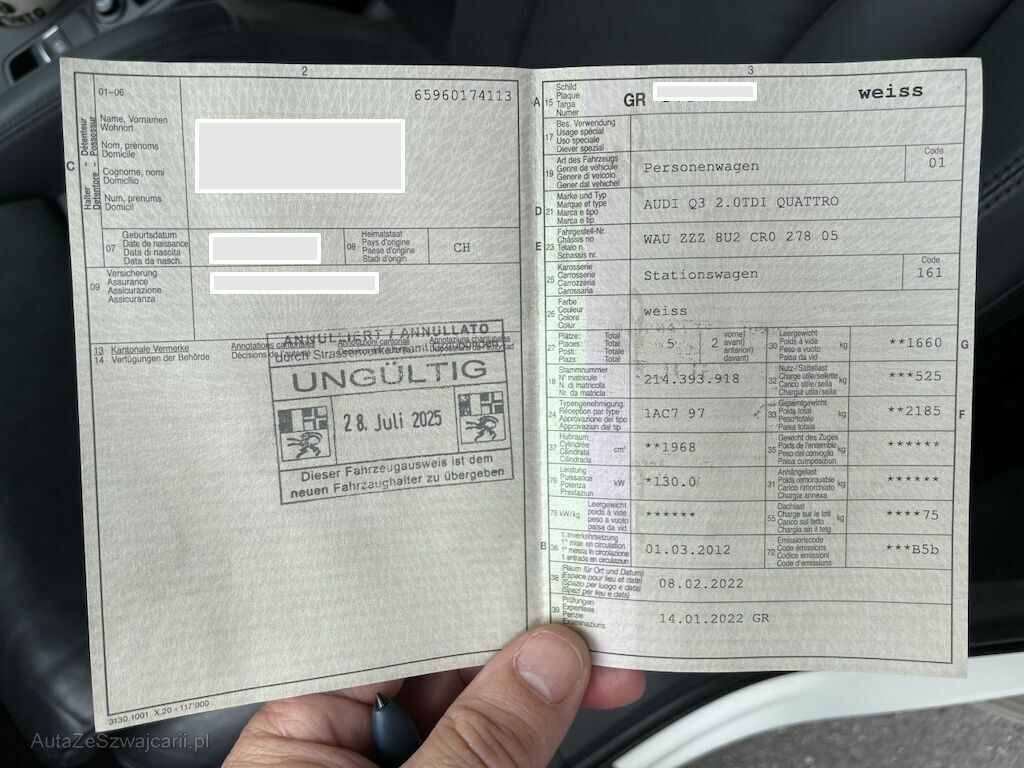 2
01-06
65960174113
Name, Vornamen
Wohnort
Nom, prénoms
Domicile
Cognome, nomi
Domicilio
Num, prenums
Domicil
C
Halter - Détenteur
Detentore - Possessur
07
Geburtsdatum
Date de naissance
Data di nascita
Data da nasch.
08
Heimatstaat
Pays d'origine
Paese d'origine
Stadi d'origin
CH
09
Versicherung
Assurance
Assicurazione
Assicuranza
13 Kantonale Vermerke
14 Verfügungen der Behörde
Annotations cantonales
Décisions de l'autorité
Annotazioni cantonali
ANNULLIERT / ANNULLATO
durch Strassenverkehrsamt Graubünden
UNGÜLTIG
28. Juli 2025
Dieser Fahrzeugausweis ist dem
neuen Fahrzeughalter zu übergeben
3130.1001 X.20 - 117'000
3
A 15
Schild
Plaque
Targa
Numer
GR
weiss
17
Bes. Verwendung
Usage spécial
Uso speciale
Diever spezial
19
Art des Fahrzeugs
Genre de véhicule
Genere di veicolo
Gener dal vehichel
Personenwagen
Code
01
D 21
Marke und Typ
Marque et type
Marca e tipo
Marca e tip
AUDI Q3 2.0TDI QUATTRO
E 23
Fahrgestell-Nr.
Châssis no
Telaio n.
Schassis nr.
WAU ZZZ 8U2 CR0 278 05
25
Karosserie
Carrosserie
Carrozzeria
Carossaria
Stationswagen
Code
161
26
Farbe
Couleur
Colore
Colur
weiss
27
Plätze: Total
Places: Total
Posti: Totale
Plazs: Total
5
2
vorne)
avant)
anteriori)
davant)
30
Leergewicht
Poids à vide
Peso a vuoto
Paisa da vid
kg
**1660
G
18
Stammnummer
N° matricule
N. di matricola
Nr. da matricla
214.393.918
32
Nutz-/Sattellast
Charge utile/sellette
Carico utile/sella
Chargia utila/sella
kg
***525
24
Typengenehmigung
Réception par type
Approvazione del tipo
Approvaziun del tip
1AC7 97
33
Gesamtgewicht
Poids total
Peso totale
Paisa totala
kg
**2185
F
37
Hubraum
Cylindrée
Cilindrata
Cilindrada
cm³
**1968
35
Gewicht des Zuges
Poids de l'ensemble
Peso del convoglio
Paisa cumposiziun
kg
******
76
Leistung
Puissance
Potenza
Prestaziun
kW
*130.0
31
Anhängelast
Poids remorquable
Carico rimorchiato
Chargia annexa
kg
******
78 kW/kg
Leergewicht
poids à vide
peso a vuoto
paisa da vid
******
55
Dachlast
Charge sur le toit
Carico sul tetto
Chargia sin il tetg
kg
****75
B 36
1. Inverkehrsetzung
1re mise en circulation
1a messa in circolazione
1. entrada en circulaziun
01.03.2012
72
Emissionscode
Code émissions
Codice emissioni
Code d'emissiuns
***B5b
38
(Raum für Ort und Datum)
(Espace pour lieu et date)
(Spazio per luogo e data)
(Spazi per lieu e data)
08.02.2022
39
Prüfungen
Expertises
Perizie
Examinaziuns
14.01.2022 GR
AutaZeSzwajcarii.pl